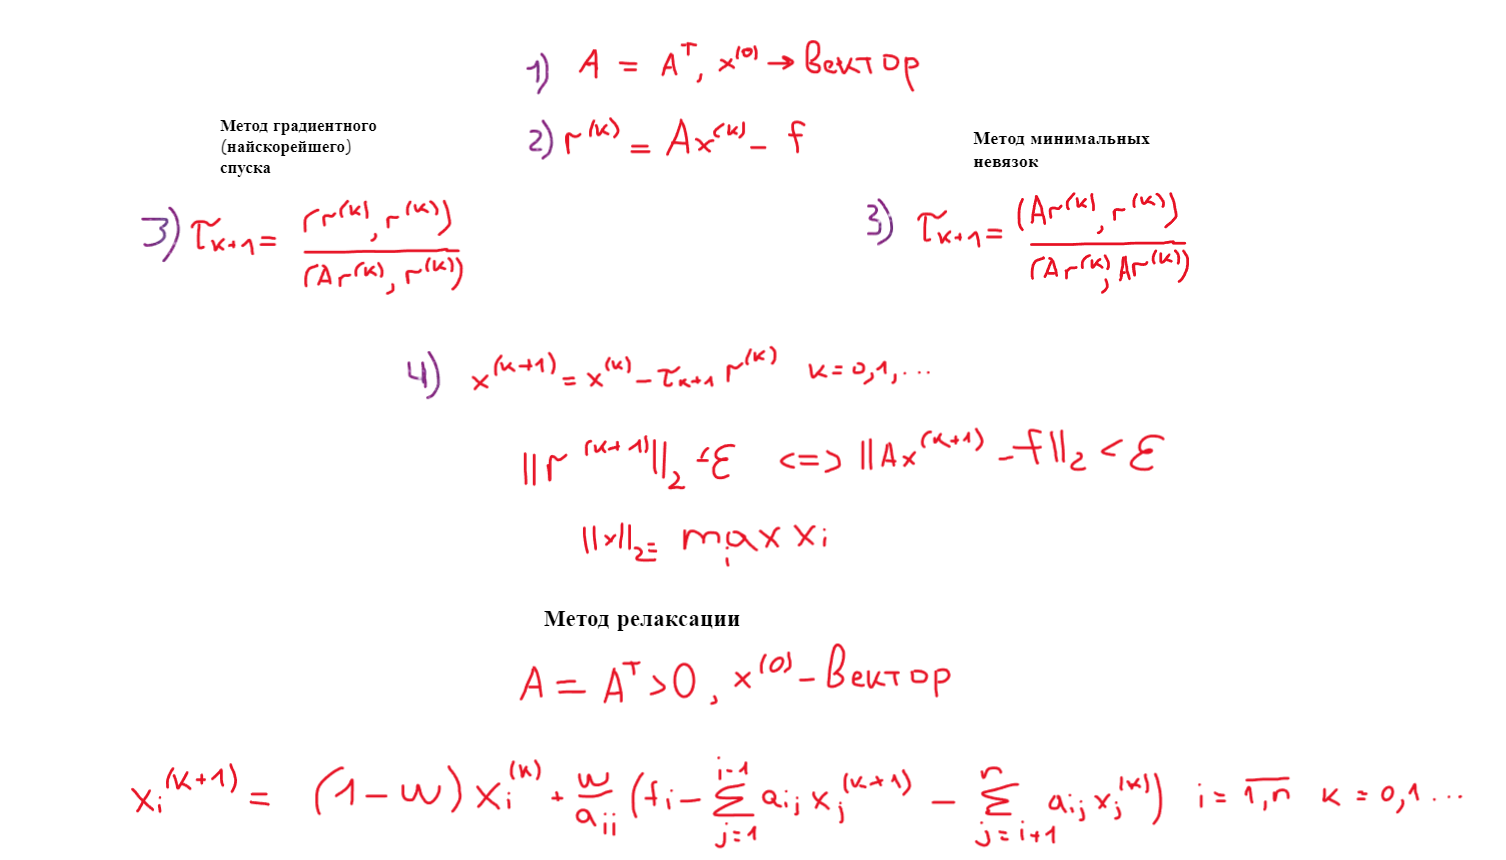 1) A = Aᵀ, x⁽⁰⁾ → вектор
Метод градиентного
(найскорейшего)
спуска
2) r⁽ᵏ⁾ = Ax⁽ᵏ⁾ - f
Метод минимальных
невязок
3) τₖ₊₁ = (r⁽ᵏ⁾, r⁽ᵏ⁾) / (Ar⁽ᵏ⁾, r⁽ᵏ⁾)
3) τₖ₊₁ = (Ar⁽ᵏ⁾, r⁽ᵏ⁾) / (Ar⁽ᵏ⁾, Ar⁽ᵏ⁾)
4) x⁽ᵏ⁺¹⁾ = x⁽ᵏ⁾ - τₖ₊₁ r⁽ᵏ⁾ k = 0,1,...
||r⁽ᵏ⁺¹⁾||₂ < ε <=> ||Ax⁽ᵏ⁺¹⁾ - f||₂ < ε
||x||₂ = max_i xᵢ
Метод релаксации
A = Aᵀ > 0, x⁽⁰⁾ - вектор
xᵢ⁽ᵏ⁺¹⁾ = (1 - w) xᵢ⁽ᵏ⁾ + w/aᵢᵢ (fᵢ - ∑_{j=1}^{i-1} aᵢⱼ xⱼ⁽ᵏ⁺¹⁾ - ∑_{j=i+1}^{n} aᵢⱼ xⱼ⁽ᵏ⁾) i = 1,n k = 0,1...